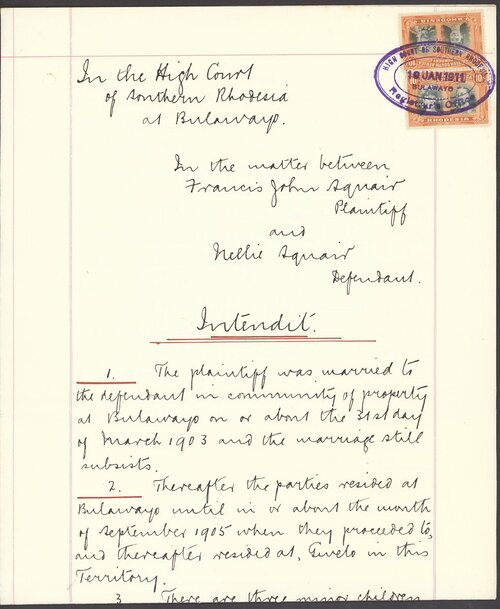 In the High Court
of Southern Rhodesia
at Bulawayo.
HIGH COURT OF SOUTHERN RHODESIA
18 JAN 1911
BULAWAYO
Registrar's Office
RHODESIA
RHODESIA
In the matter between
Francis John Squair
Plaintiff
and
Nellie Squair
Defendant.
Intendit.
1. The plaintiff was married to
the defendant in community of property
at Bulawayo on or about the 31st day
of March 1903 and the marriage still
subsists.
2. Thereafter the parties resided at
Bulawayo until in or about the month
of September 1905 when they proceeded to,
and thereafter resided at, Gwelo in this
Territory.
3 There are three minor children